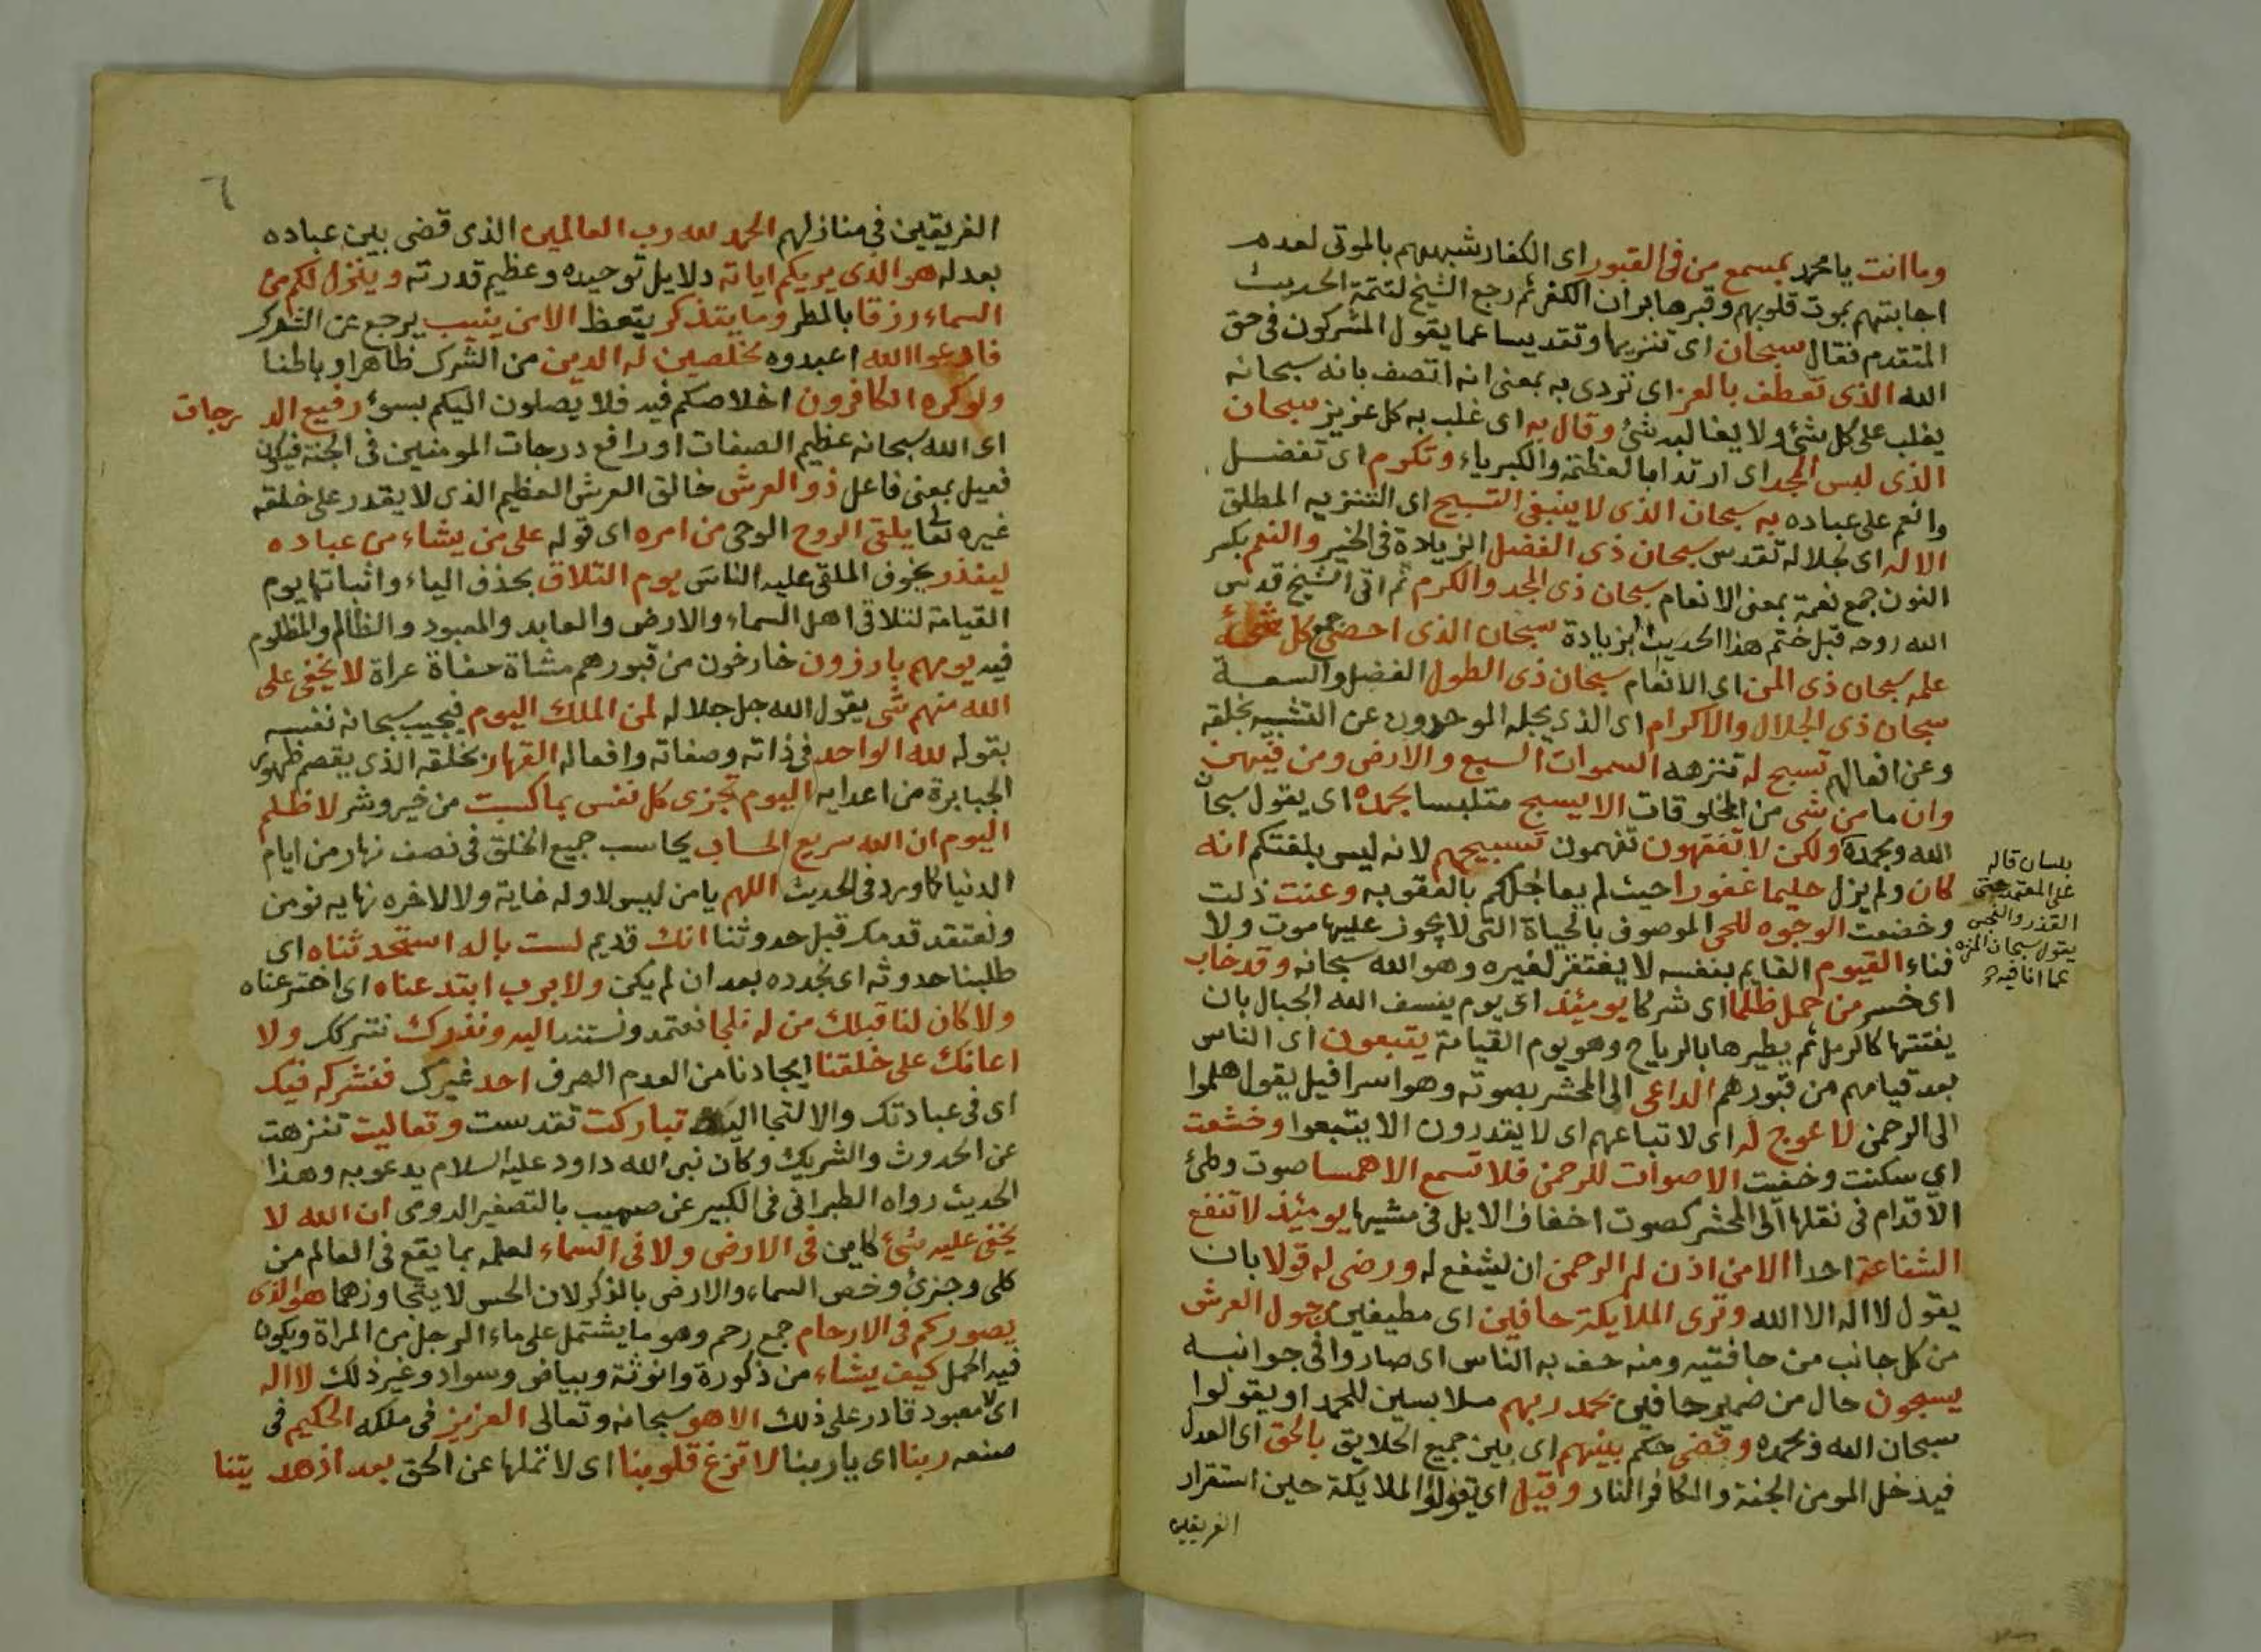 وما انت يا محمد بمسمع من فى القبور اى الكفار شبههم بالموتى لعدم
اجابتهم بموت قلوبهم وقبرها بران الكفر ثم رجع الشيخ لتتمة الحديث
المتقدم فقال سبحان اى تنزيها وتقديسا عما يقول المشركون فى حق
الله الذى تعطف بالعز اى تردى به بمعنى انه اتصف بانه سبحانه
يغلب على كل شئ ولا يغالبه شئ وقال به اى غلب به كل عزيز سبحان
الذى لبس المجد اى ارتدا بالعظمة والكبرياء وتكرم اى تفضل
وانعم على عباده به سبحان الذى لا ينبغى التسبيح اى التنزيه المطلق
الا له اى لجلاله تقدس سبحان ذى الفضل الزيادة فى الخير والنعم بكسر
النون جمع نعمة بمعنى الانعام سبحان ذى المجد والكرم ثم اتى الشيخ قدس
الله روحه قبل ختم هذا الحديث بزيادة سبحان الذى احصى جمع كل شئ
علمه سبحان ذى المن اى الانعام سبحان ذى الطول الفضل والسعة
سبحان ذى الجلال والاكرام اى الذى يجله الموحدون عن التشبيه بخلقه
وعن افعالهم تسبح له تنزهه السموات السبع والارض ومن فيهن
وان ما من شى من المخلوقات الا يسبح متلبسا بحمده اى يقول سبحان
الله وبحمده ولكن لا تفقهون تفهمون تسبيحهم لانه ليس بلغتكم انه
كان ولم يزل حليما غفورا حيث لم يعاجلكم بالعقوبه وعنت ذلت
وخضعت الوجوه للحى الموصوف بالحياة التى لا يجوز عليها موت ولا
فناء القيوم القايم بنفسه لا يفتقر لغيره وهو الله سبحانه وقد خاب
اى خسر من حمل ظلما اى شركا يومئذ اى يوم ينسف الله الجبال بان
يفتتها كالرمل ثم يطيرها بالرياح وهو يوم القيامة يتبعون اى الناس
بعد قيامهم من قبورهم الداعى الى المحشر بصوته وهو اسرافيل يقول هلموا
الى الرحمن لا عوج له اى لاتباعهم اى لا يقدرون الا يتبعوا وخشعت
اى سكنت وخفت الاصوات للرحمن فلا تسمع الا همسا صوت وطئ
الاقدام فى نقلها الى المحشر كصوت اخفاف الابل فى مشيها يومئذ لا تنفع
الشفاعة احدا الا من اذن له الرحمن ان يشفع له ورضى له قولا بان
يقول لا اله الا الله وترى الملايكة حافين اى مطيفين من حول العرش
من كل جانب من حافتيه ومنه حف به الناس اى صاروا فى جوانبه
يسبحون حال من ضمير حافين بحمد ربهم ملابسين للحمد او يقولوا
سبحان الله وبحمده وقضى حكم بينهم اى بين جميع الخلايق بالحق اى العدل
فيدخل المومن الجنة والكافر النار وقيل اى يقولوا الملايكة حين استقرار
الفريقين
بلسان قاله
على المعتمد حتى
القذر والنجس
يقول سبحان المنزه
عما انا فيه
٦
الفريقين فى منازلهم الحمد لله رب العالمين الذى قضى بين عباده
بعدله هو الذى يريكم اياته دلايل توحيده وعظيم قدرته وينزل لكم من
السماء رزقا بالمطر وما يتذكر يتعظ الا من ينيب يرجع عن الشرك
فادعوا الله اعبدوه مخلصين له الدين من الشرك ظاهرا وباطنا
ولو كره الكافرون اخلاصكم فيه فلا يصلون اليكم بسوء رفيع الدرجات
اى الله سبحانه عظيم الصفات او رافع درجات المومنين فى الجنة فيكون
فعيل بمعنى فاعل ذو العرش خالق العرش العظيم الذى لا يقدر على خلقه
غيره تعالى يلقى الروح الوحى من امره اى قوله على من يشاء من عباده
لينذر يخوف الملقى عليه الناس يوم التلاق بحذف الياء واثباتها يوم
القيامة لتلاقى اهل السماء والارض والعابد والمعبود والظالم والمظلوم
فيه يومهم بارزون خارخون من قبورهم مشاة حفاة عراة لا يخفى على
الله منهم شى يقول الله جل جلاله لمن الملك اليوم فيجيب سبحانه نفسه
بقوله لله الواحد فى ذاته وصفاته وافعاله القهار بخلقه الذى يقصم ظهور
الجبابرة من اعدايه اليوم تجزى كل نفس بما كسبت من خير وشر لا ظلم
اليوم ان الله سريع الحساب يحاسب جميع الخلق فى نصف نهار من ايام
الدنيا كما ورد فى الحديث اللهم يا من ليس لاوله غاية ولا لاخره نهايه نومن
ونعتقد قدمك قبل حدوثنا انك قديم لست باله استحدثناه اى
طلبنا حدوثه اى تجدده بعد ان لم يكن ولا برب ابتدعناه اى اخترعناه
ولا كان لنا قبلك من له نلجا نعتمد ونستند اليه ونذرك نتركك ولا
اعانك على خلقنا ايجادنا من العدم الصرف احد غيرك فنشركه فيك
اى فى عبادتك والالتجا اليك تباركت تقدست وتعاليت تنزهت
عن الحدوث والشريك وكان نبى الله داود عليه السلام يدعو به وهذا
الحديث رواه الطبرانى فى الكبير عن صهيب بالتصغير الرومى ان الله لا
يخفى عليه شئ كاين فى الارض ولا فى السماء لعلمه بما يقع فى العالم من
كلى وجزئ وخص السماء والارض بالذكر لان الحس لا يتجاوزهما هو الذى
يصوركم فى الارحام جمع رحم وهو ما يشتمل على ماء الرجل من المراة ويكون
فيه الحمل كيف يشاء من ذكورة وانوثة وبياض وسواد وغير ذلك لا اله
اى لا معبود قادر على ذلك الا هو سبحانه وتعالى العزيز فى ملكه الحكيم فى
صنعه ربنا اى يا ربنا لا تزغ قلوبنا اى لا تملها عن الحق بعد اذ هديتنا